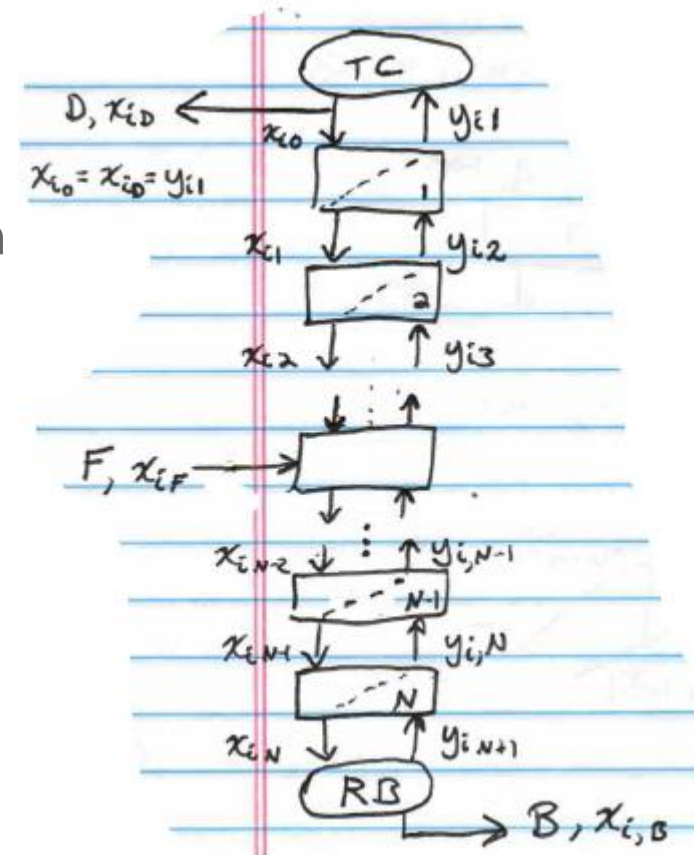 TC
D, x_iD
x_i0
y_i1
x_i0 = x_iD = y_i1
1
x_i1
y_i2
2
x_i2
y_i3
F, x_iF
x_i,N-2
y_i,N-1
N-1
x_i,N-1
y_i,N
N
x_i,N
y_i,N+1
RB
B, x_i,B